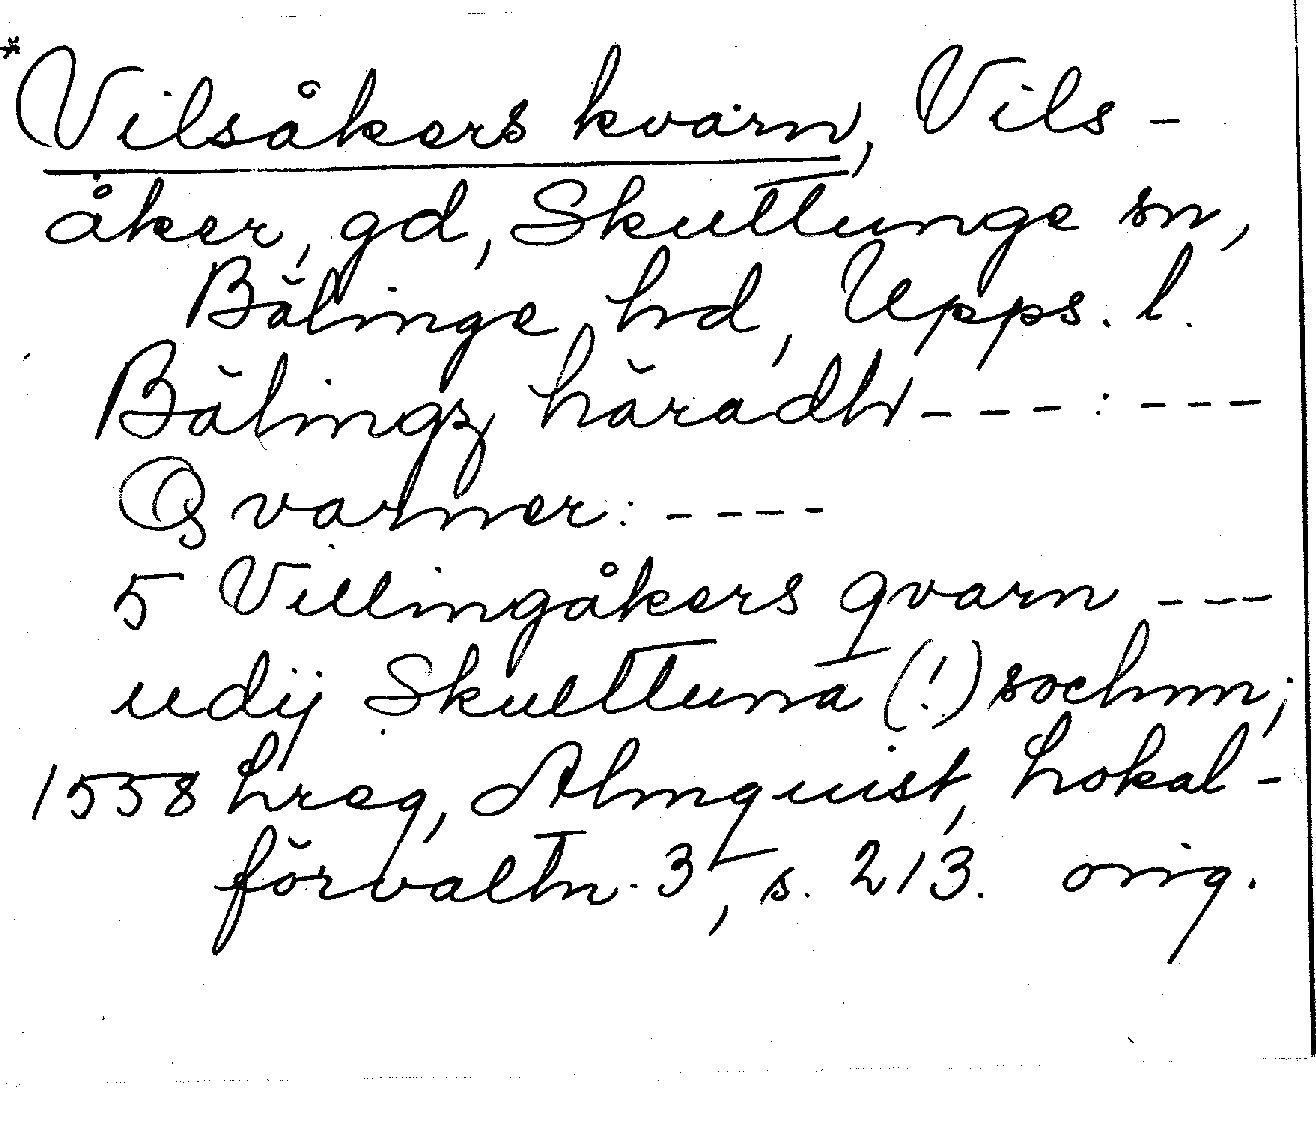 *Vilsåkers kvarn, Vils-
åker, gd, Skuttunge sn,
Bälinge hd, Upps. l.
Bälingz häradh - - - : - - -
Qvarner: - - - -
5 Villingåkers qvarn - - -
udij Skulltuna (!) sochnn;
1558 hreg, Almquist, Lokal-
förvaltn. 3, s. 213. orig.